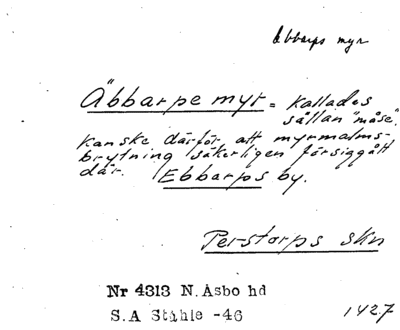 Ebbarps myr
Äbbarpe myr = kallades
sällan "måse",
kanske därför att myrmalms-
brytning säkerligen försiggått
där. Ebbarps by.
Perstorps skn
Nr 4313 N. Åsbo hd
S.A Ståhle -46
1427